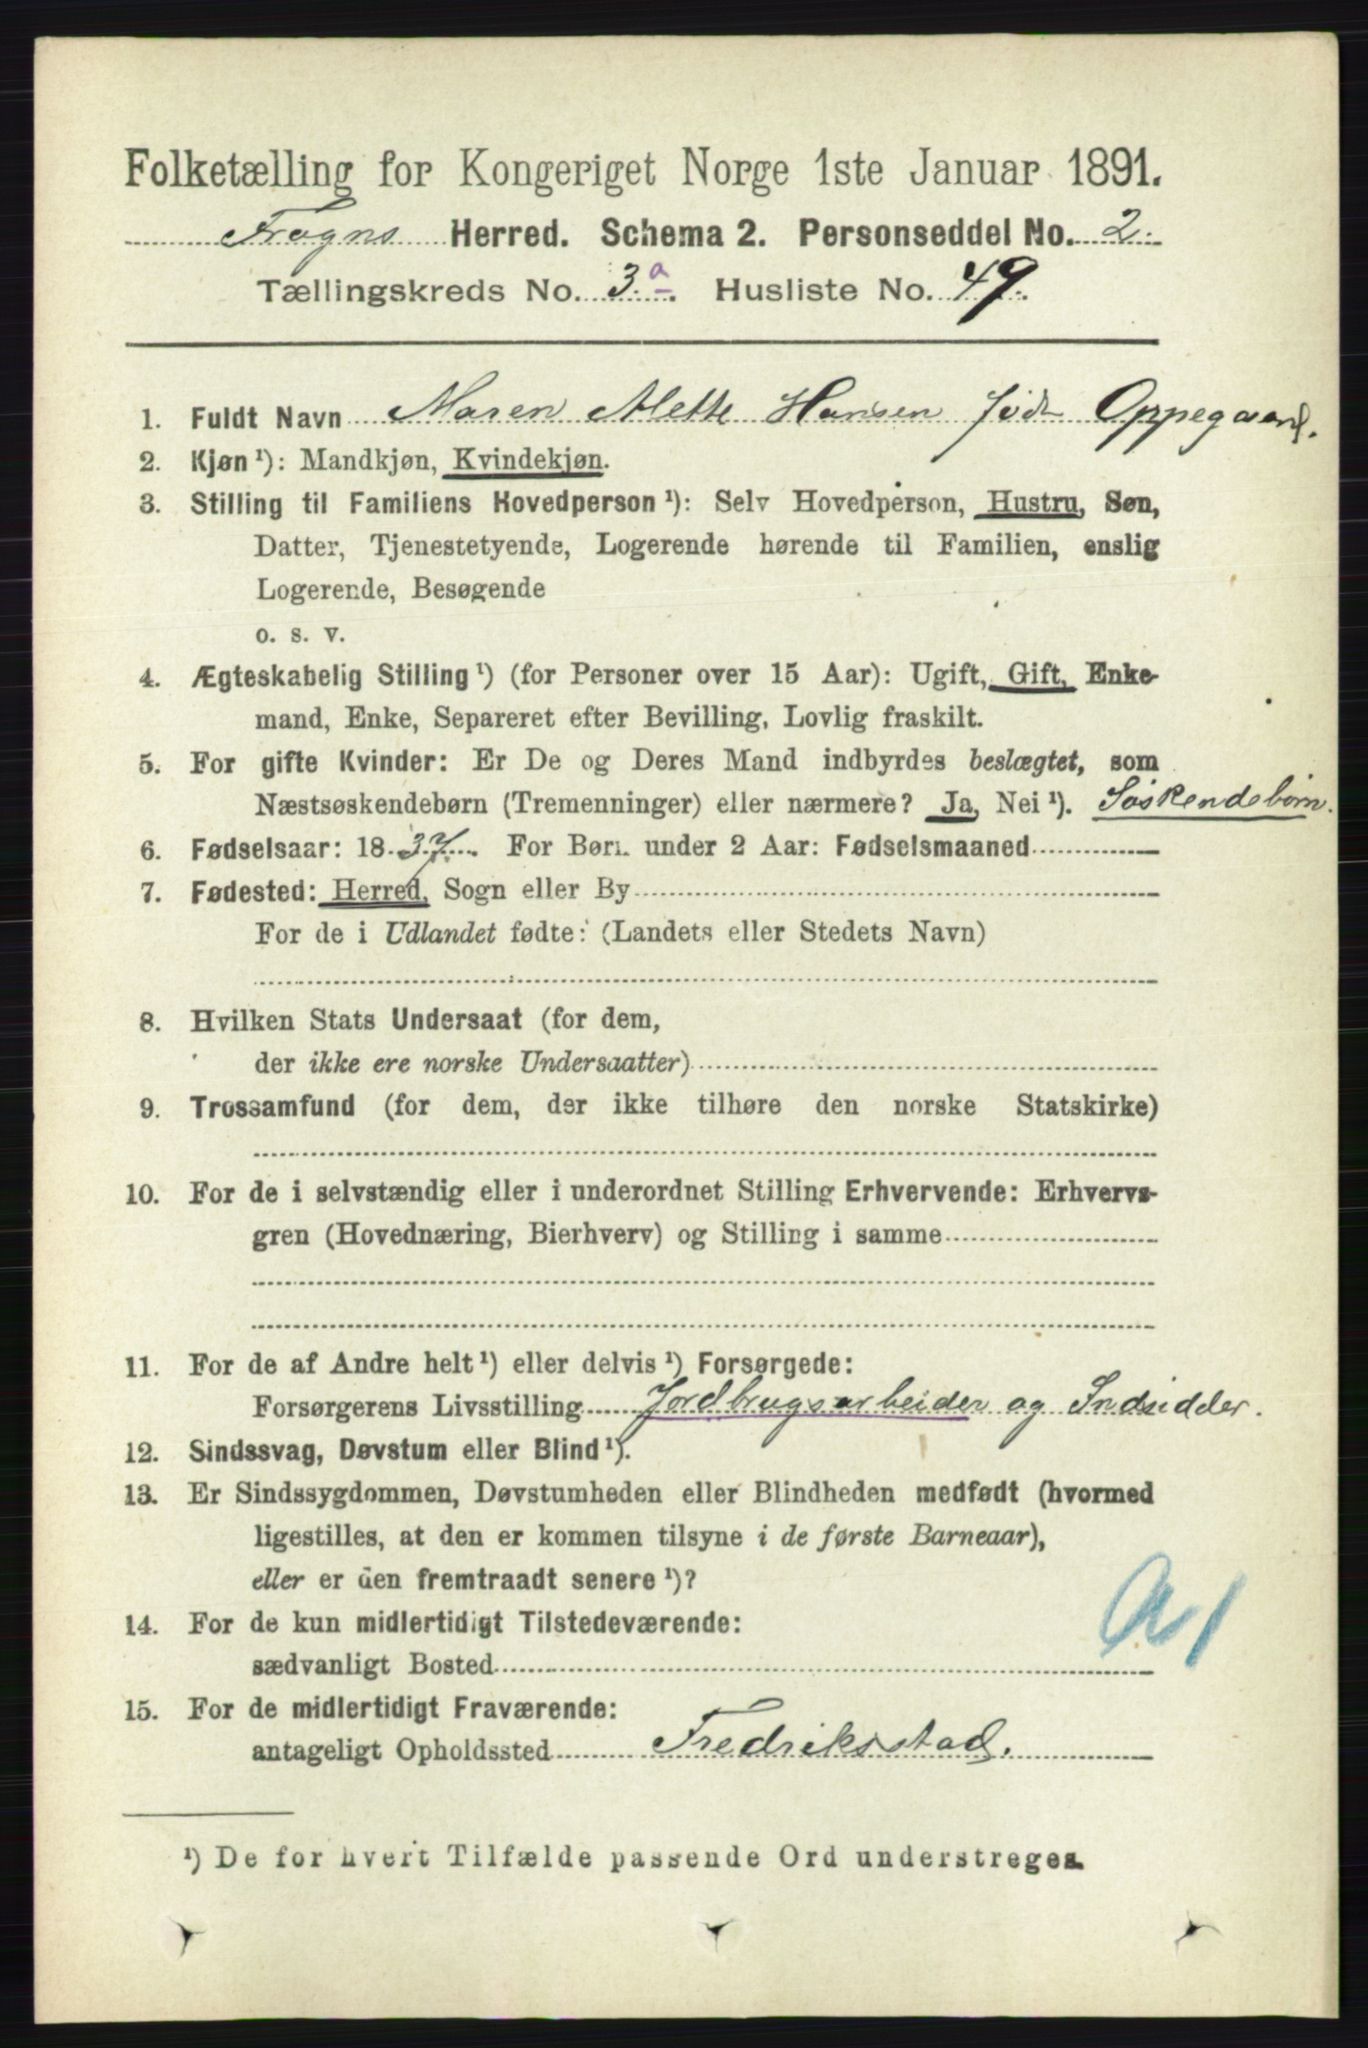 Folketælling for Kongeriget Norge 1ste Januar 1891.
Frogns Herred. Schema 2. Personseddel No. 2.
Tællingskreds No. 3.a Husliste No. 49.
1. Fuldt Navn Maren Alette Hansen født Oppegaard.
2. Kjøn ¹): Mandkjøn, Kvindekjøn.
3. Stilling til Familiens Hovedperson ¹): Selv Hovedperson, Hustru, Søn,
Datter, Tjenestetyende, Logerende hørende til Familien, enslig
Logerende, Besøgende
o. s. v.
4. Ægteskabelig Stilling ¹) (for Personer over 15 Aar): Ugift, Gift, Enke-
mand, Enke, Separeret efter Bevilling, Lovlig fraskilt.
5. For gifte Kvinder: Er De og Deres Mand indbyrdes beslægtet, som
Næstsøskendebørn (Tremenninger) eller nærmere? Ja, Nei ¹). Søskendebørn.
6. Fødselsaar: 1837. For Børn under 2 Aar: Fødselsmaaned
7. Fødested: Herred, Sogn eller By
For de i Udlandet fødte: (Landets eller Stedets Navn)
8. Hvilken Stats Undersaat (for dem,
der ikke ere norske Undersaatter)
9. Trossamfund (for dem, der ikke tilhøre den norske Statskirke)
10. For de i selvstændig eller i underordnet Stilling Erhvervende: Erhvervs-
gren (Hovednæring, Bierhverv) og Stilling i samme
11. For de af Andre helt ¹) eller delvis ¹) Forsørgede:
Forsørgerens Livsstilling Jordbrugsarbeider og Indsidder.
12. Sindssvag, Døvstum eller Blind ¹).
13. Er Sindssygdommen, Døvstumheden eller Blindheden medfødt (hvormed
ligestilles, at den er kommen tilsyne i de første Barneaar),
eller er den fremtraadt senere ¹)?
14. For de kun midlertidigt Tilstedeværende:
sædvanligt Bosted
15. For de midlertidigt Fraværende:
antageligt Opholdssted Fredriksstad.
¹) De for hvert Tilfælde passende Ord understreges.